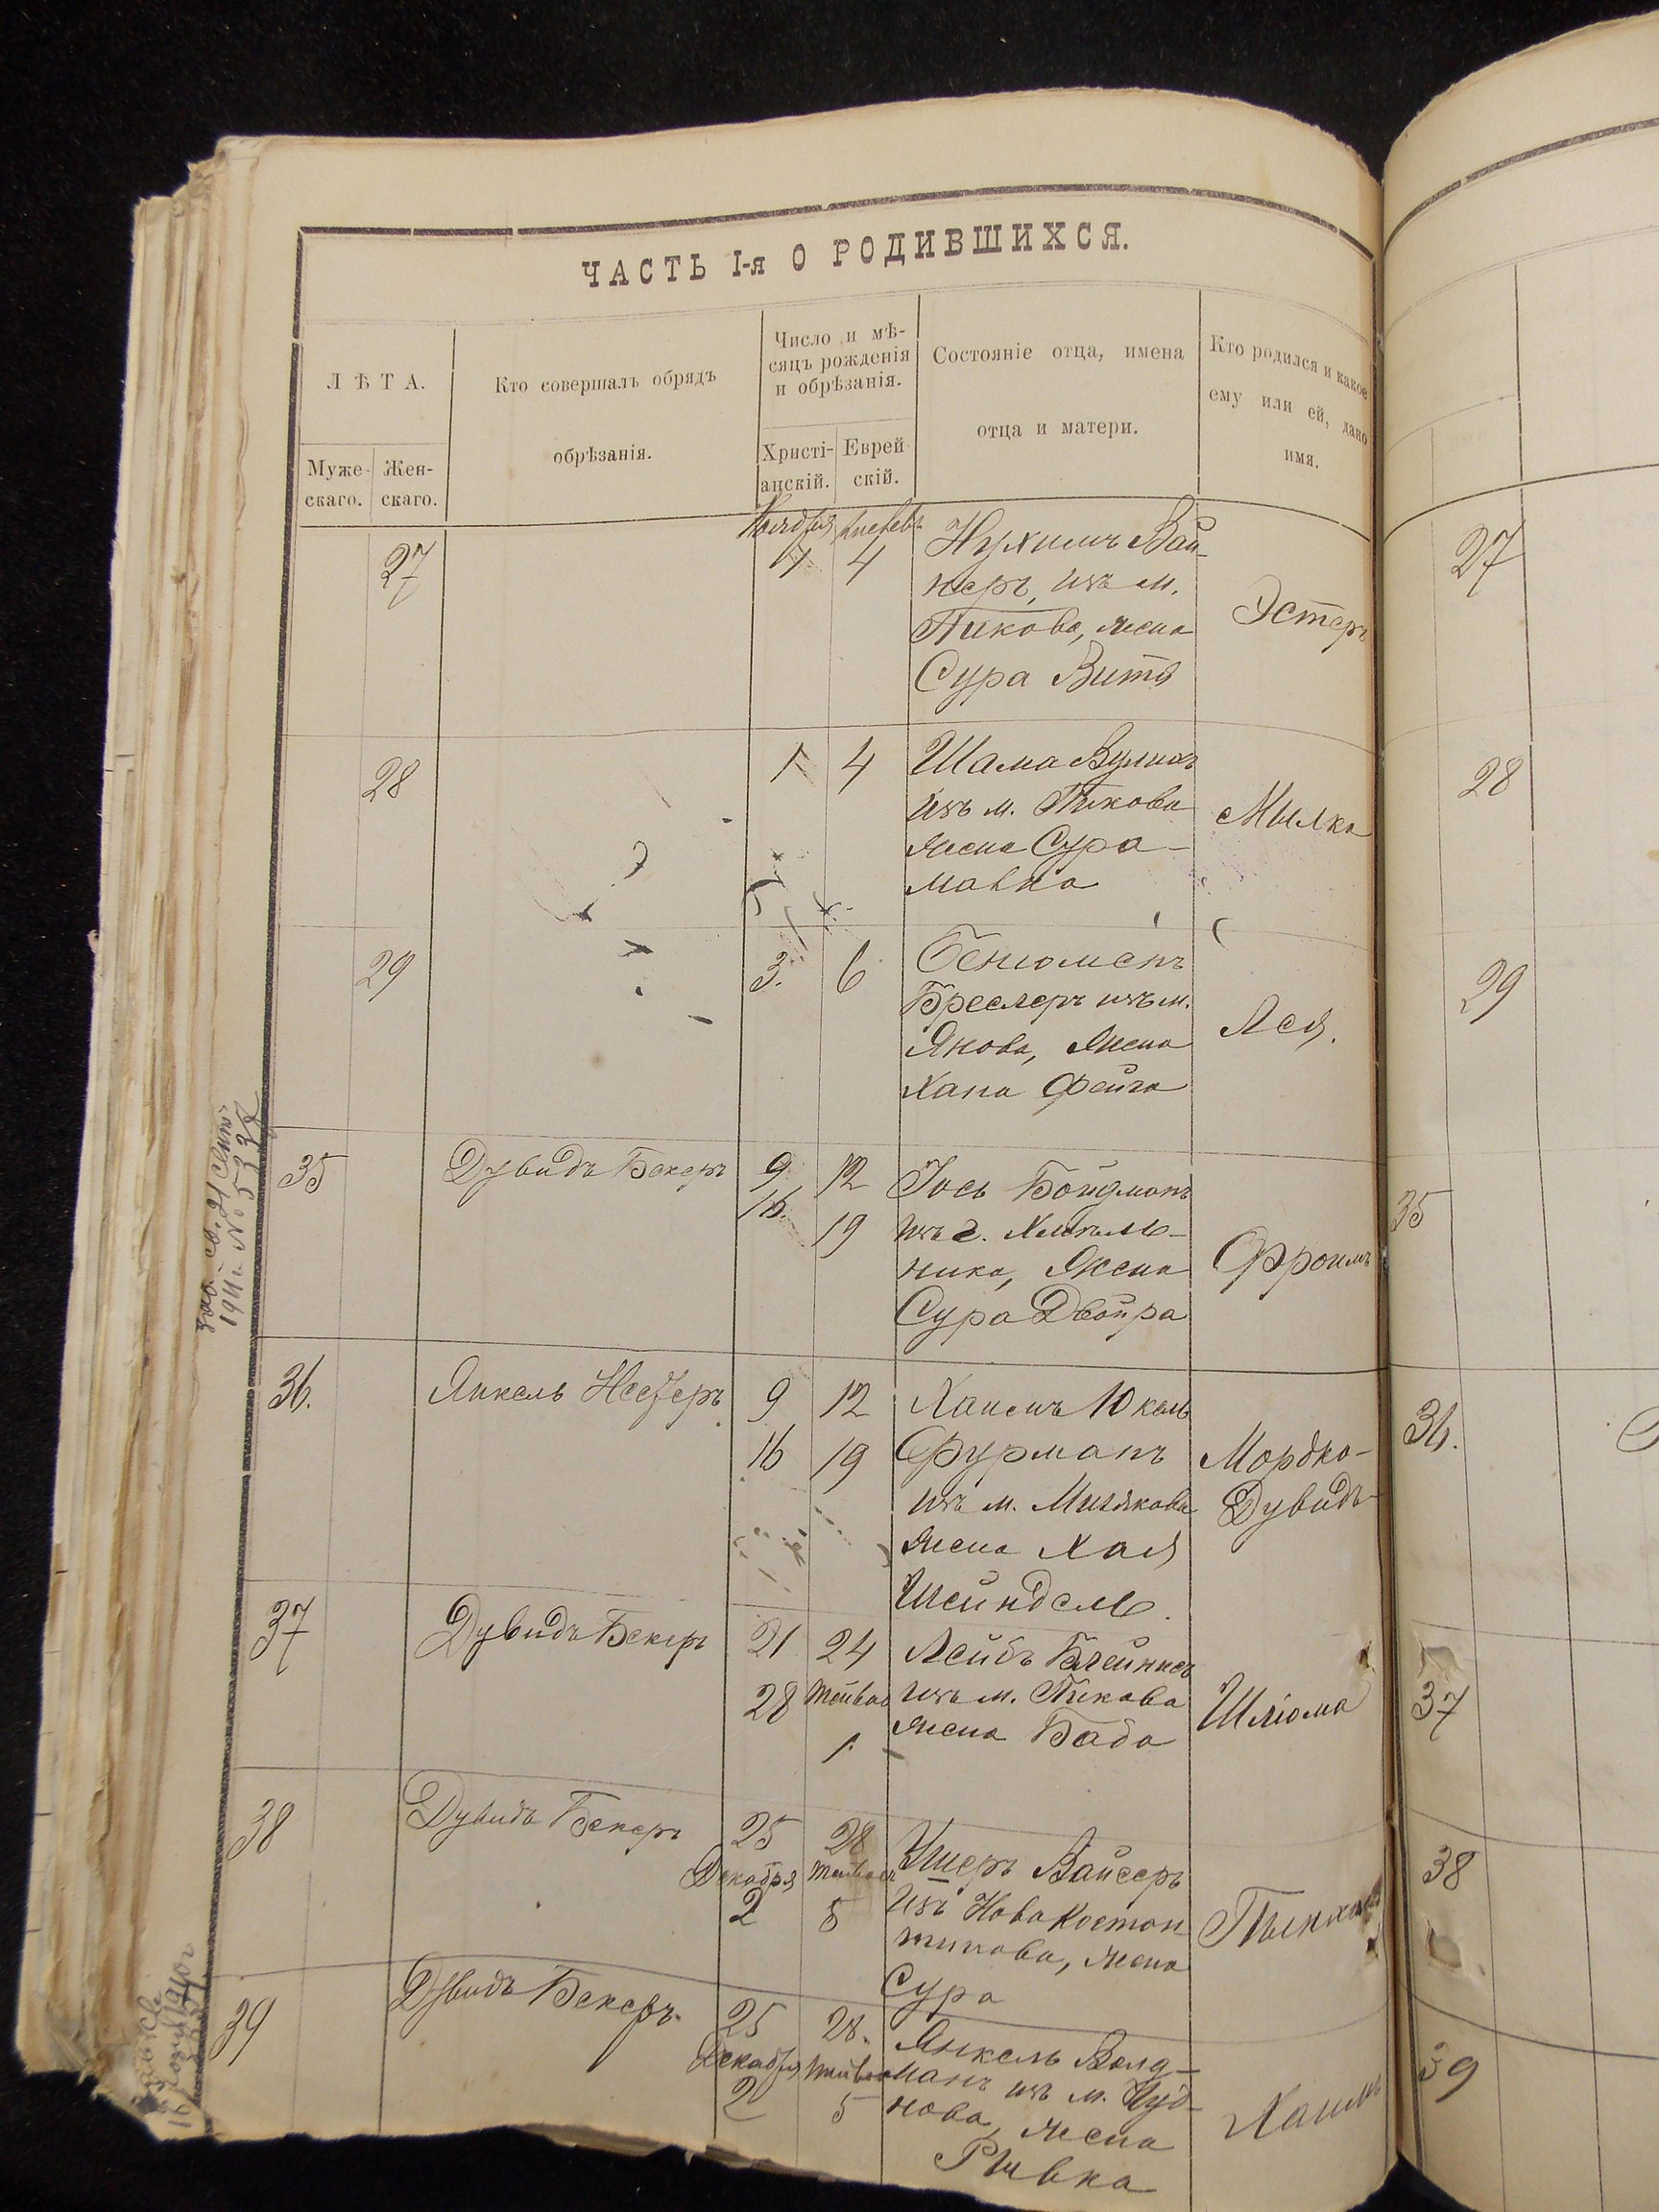 ЧАСТЬ I-я О РОДИВШИХСЯ.
Л Ѣ Т А.
Муже-
скаго.
Жен-
скаго.
Кто совершалъ обрядъ
обрѣзанія.
Число и мѣ-
сяцъ рожденія
и обрѣзанія.
Христі-
анскій.
Еврей
скій.
Состояніе отца, имена
отца и матери.
Кто родился и какое
ему или ей, дано
имя.
27
Ноября
4
Нухимъ Вай-
неръ, изъ м.
Пикова, жена
Сура Витя
Эстеръ
27
28
1
4
Шама Вулихъ
изъ м. Пикова
жена Сура-
Малка
Мылка
28
29
3.
6
Бенюменъ
Бреслеръ изъ м.
Янова, Жена
Хана Фейга
Лея.
29
35
Дувидъ Бекеръ
9
16.
12
19
Іось Бойдманъ
изъ г. Хмѣль-
ника, Жена
Сура Двойра
Фроимъ
35
36.
Янкель
9
16
12
19
Хаимъ Юкель
Фурманъ
изъ м.
жена Хая
Шейндель.
Мордко-
Дувидъ
36.
37
Дувидъ Бекеръ
21
28
24
Тейвас
1.
Лейбъ
изъ м. Пикова
жена Баба
Шліома
37
38
Дувидъ Бекеръ
25
Декабря
2
28
5
Ушеръ Вайсеръ
изъ НоваКостан
тинова, жена
Сура
38
39
Дувидъ Бекеръ.
25
Декабря
2
28.
5
Янкель Волд-
манъ изъ м. Чуд-
нова, жена
Рывка
Хаимъ
39
1911 г. № 5232